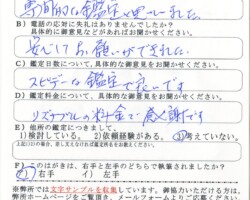 専門的な鑑定と思いました
B) 電話の応対に失礼はありませんでしたか?
具体的な御意見などがあればお聞かせください。
安心してお願いができました
C) 鑑定日数について、具体的な御意見をお聞かせください。
スピーディな鑑定で良いです
D) 鑑定料金について、具体的な御意見をお聞かせください。
リーズナブルな料金で感謝です
E) 他所の鑑定につきまして。
1)検討している。 2)依頼経験がある。 3)考えていない。
F) このはがきは、右手と左手のどちらで執筆されましたか?
1)右手 イ)左手
※弊所では文字サンプルを収集しています。御協力いただける方は、
弊所ホームページをご覧頂き、メールフォームよりご応募ください。